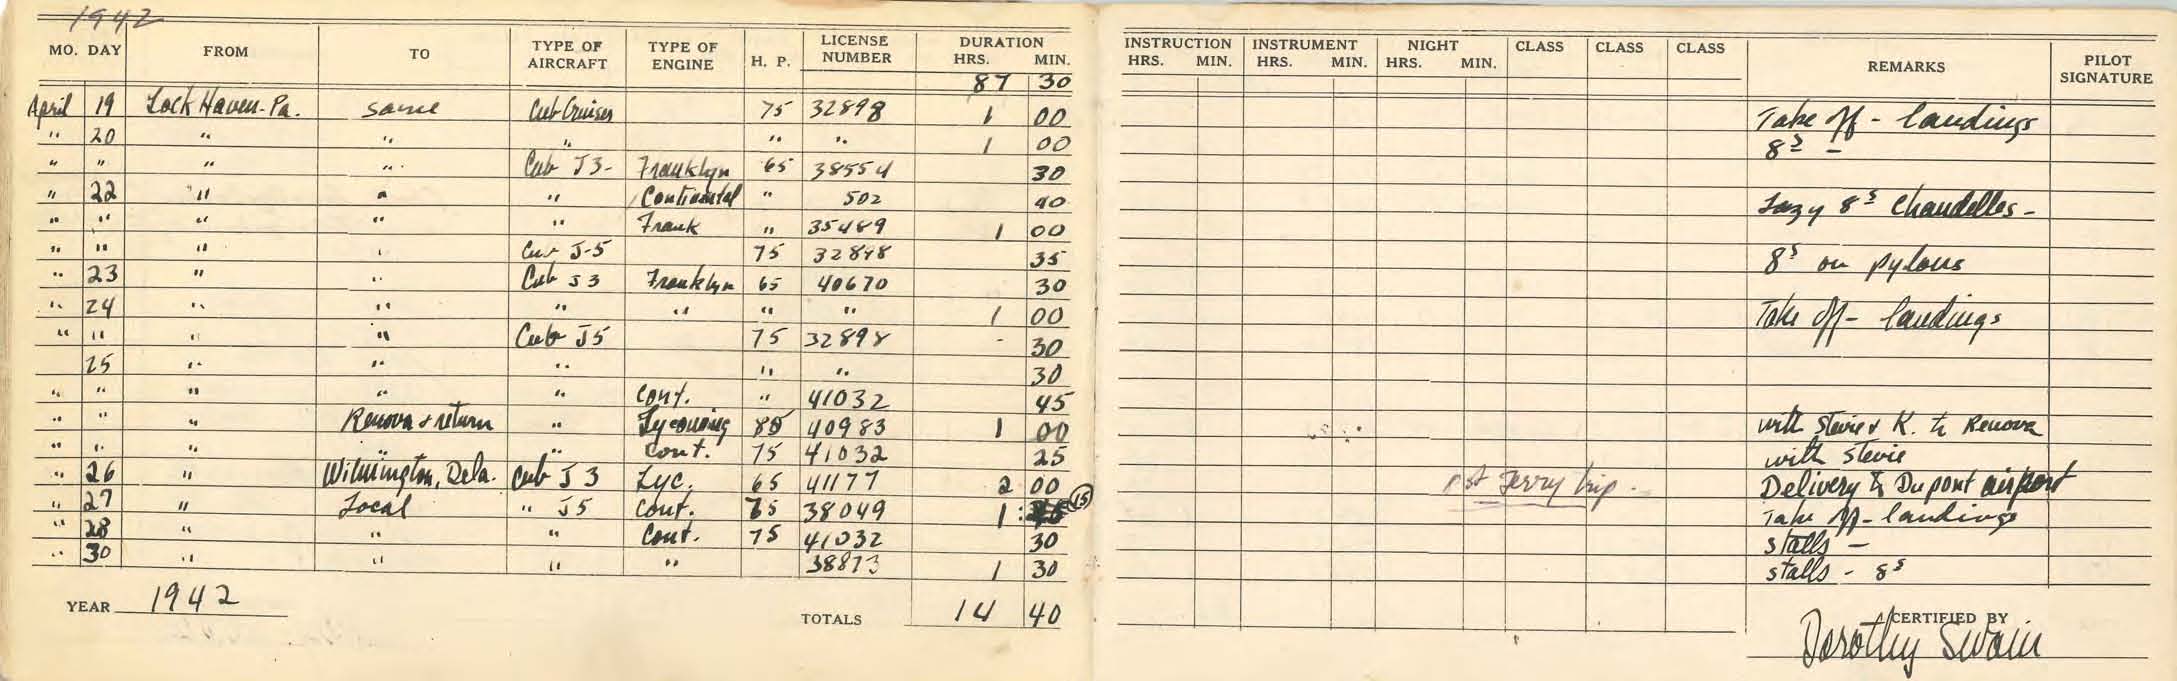 1942
MO. DAY FROM TO TYPE OF AIRCRAFT TYPE OF ENGINE H. P. LICENSE NUMBER DURATION HRS. MIN. INSTRUCTION HRS. MIN. INSTRUMENT HRS. MIN. NIGHT HRS. MIN. CLASS CLASS CLASS REMARKS PILOT SIGNATURE
87 30
April 19 Lock Haven-Pa. same Cub Cruiser 75 32898 1 00 Take off - landings
" 20 " " " " " 1 00 8s -
" " " " Cub J3- Franklyn 65 38554 30
" 22 " " " Continental " 502 40 Lazy 8s Chandelles-
" " " " Frank " 35489 1 00
" " " " Cub J-5 75 32898 35 8s on pylons
" 23 " " Cub J3 Franklyn 65 40670 30
" 24 " " " " " " 1 00 Take off - landings
" " " " Cub J5 75 32898 - 30
25 " " " " " 30
" " " " " Cont. " 41032 45
" " " Renova & return " Lycoming 80 40983 1 00 with Stevie & K. to Renova
" " " " " Cont. 75 41032 25 with Stevie
" 26 " Wilmington, Dela. Cub J3 Lyc. 65 41177 2 00 1st Ferry trip. Delivery to Dupont airport
" 27 " Local " J5 Cont. 75 38049 1 : 15 Take off - landings
" 28 " " " Cont. 75 41032 30 stalls -
" 30 " " " " 38873 1 30 stalls - 8s
YEAR 1942 TOTALS 14 40 CERTIFIED BY
Dorothy Swain